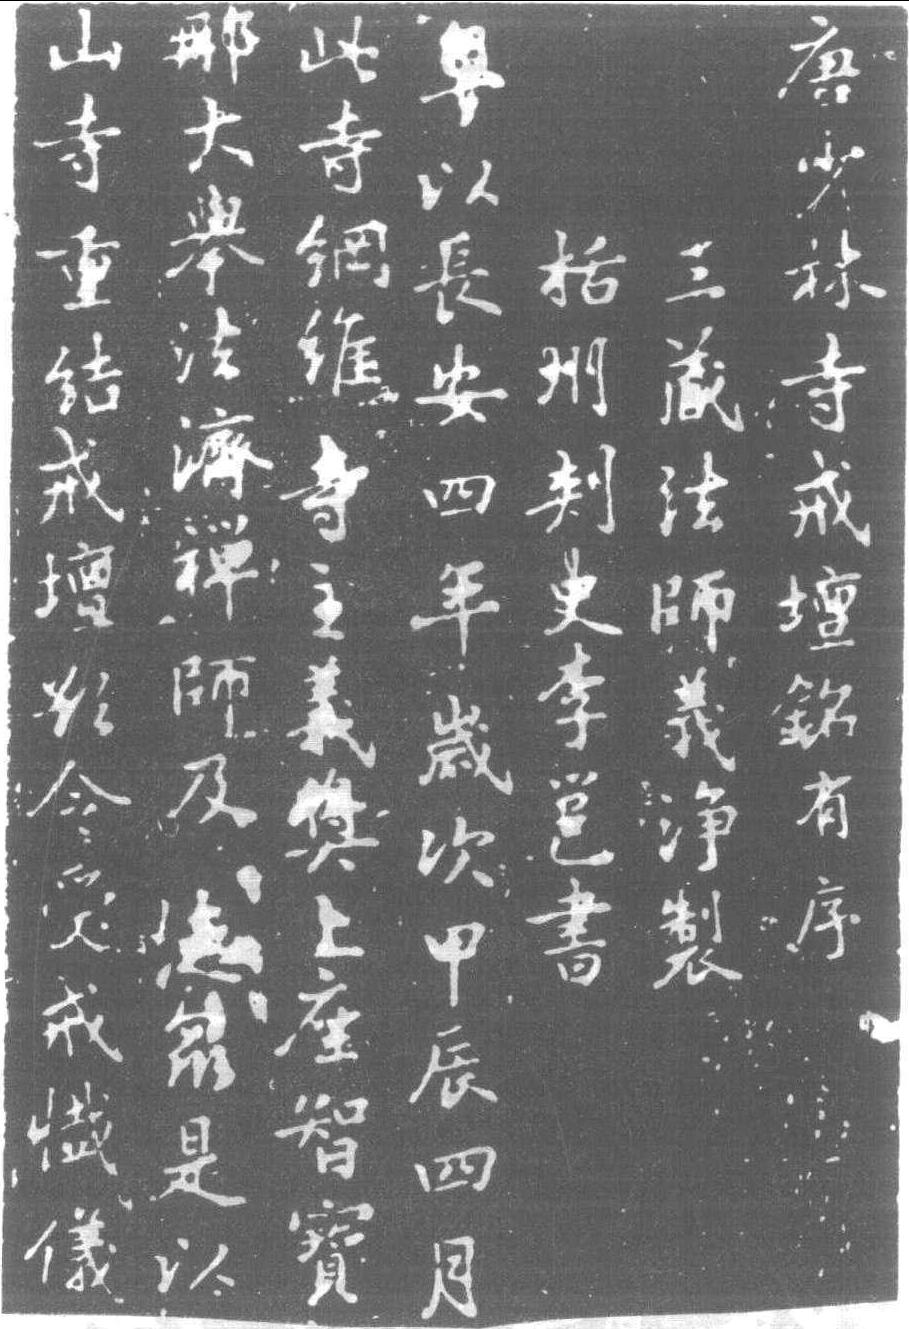 唐少林寺戒壇銘有序
三藏法師義淨製
括州刺史李邕書
粵以長安四年歲次甲辰四月
此寺綱維寺主義奬上座智寶
那大舉法濟禪師及徒衆是以
山寺重結戒壇欲令受戒懺儀